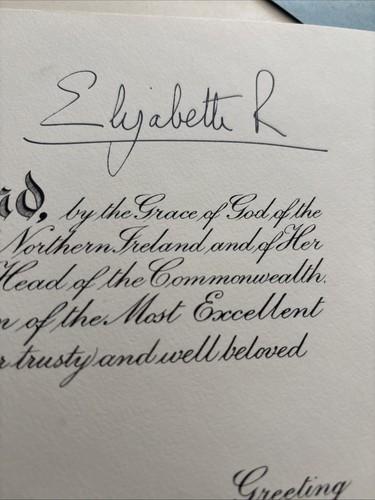 Elizabeth R
nd, by the Grace of God of the
Northern Ireland and of Her
Head of the Commonwealth.
n of the Most Excellent
r trusty and well beloved
Greeting